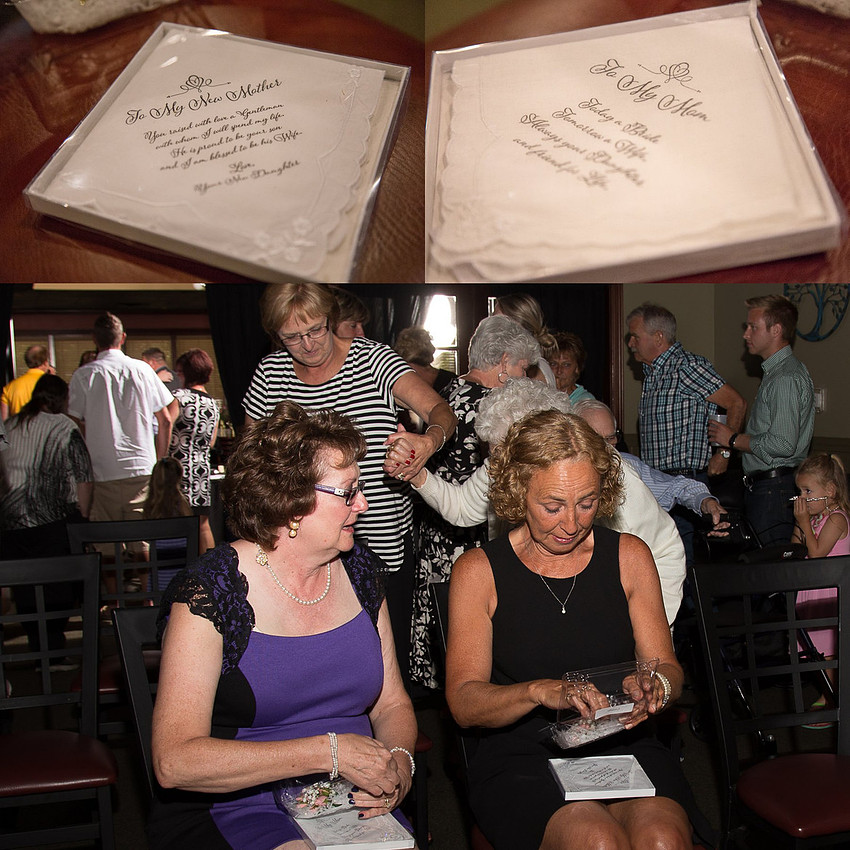 To My New Mother
You raised with love a Gentleman
with whom I will spend my life.
He is proud to be your son,
and I am blessed to be his Wife.
Love,
Your New Daughter
To My Mom
Today a Bride
Tomorrow a Wife,
Always your Daughter,
and friend for Life.